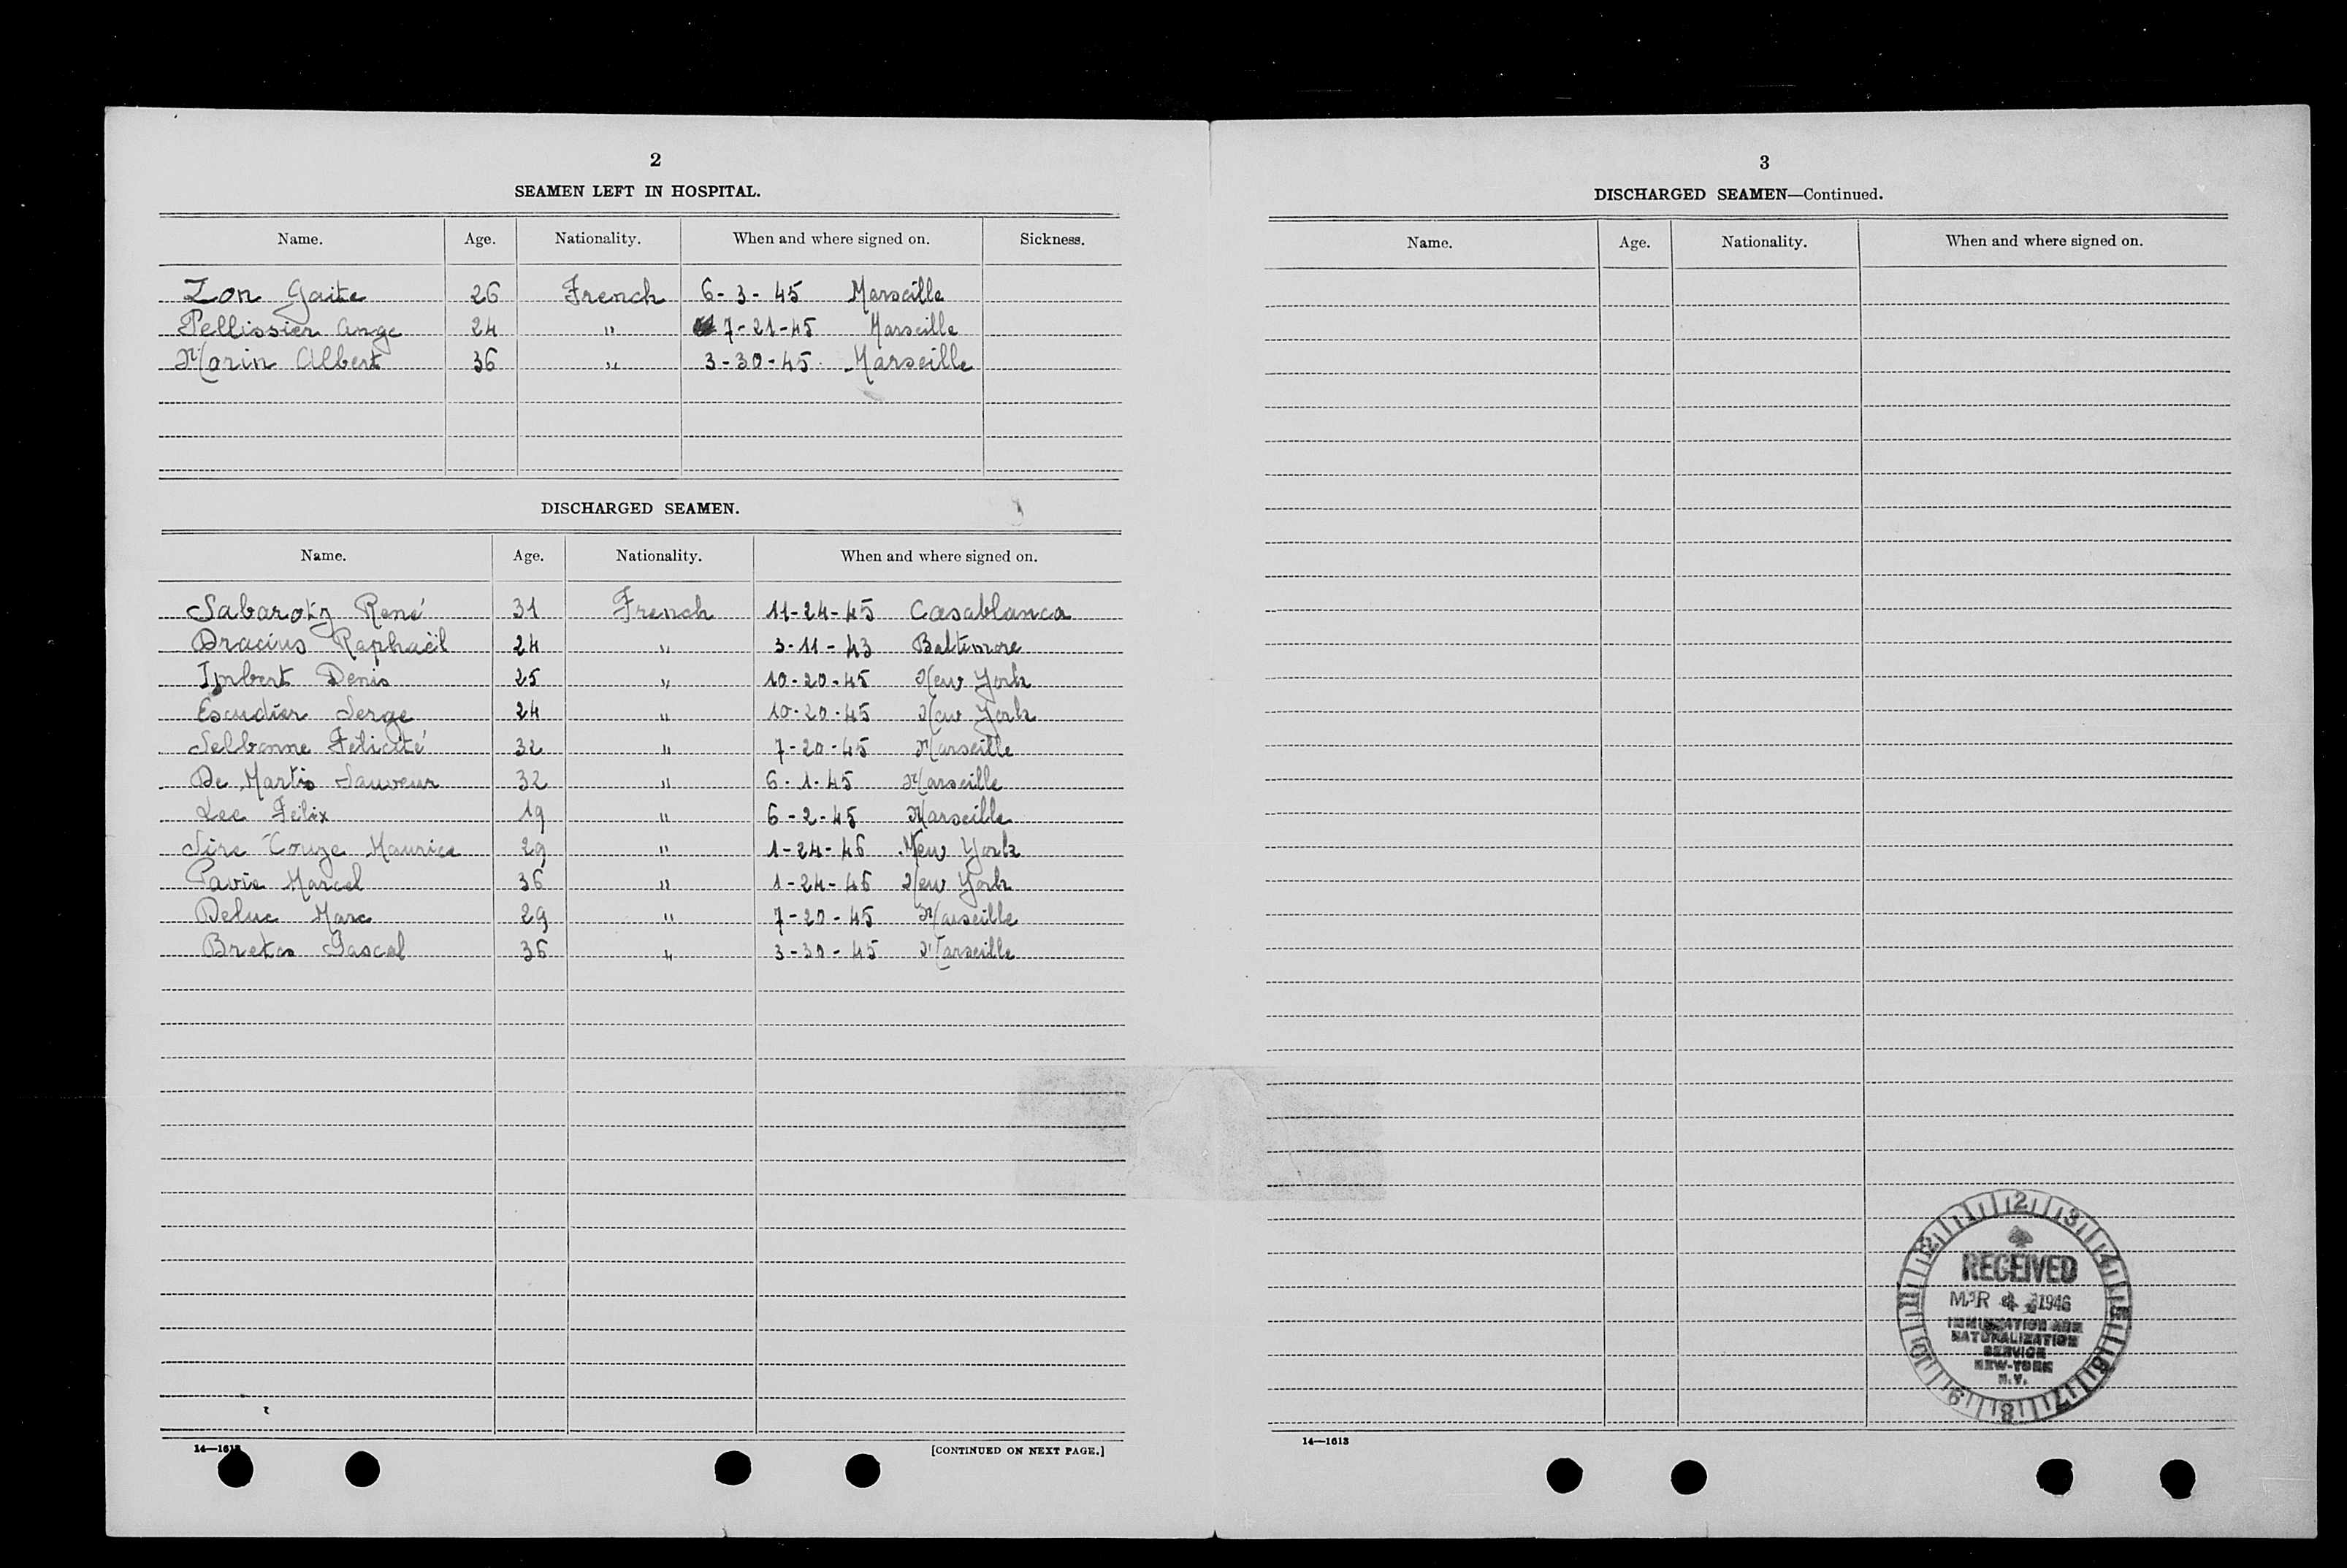 2
SEAMEN LEFT IN HOSPITAL.
Name. Age. Nationality. When and where signed on. Sickness.
Zon Gaite 26 French 6-3-45 Marseille
Pellissier Ange 24 " 7-21-45 Marseille
Morin Albert 36 " 3-30-45. Marseille
DISCHARGED SEAMEN.
Name. Age. Nationality. When and where signed on.
Sabarotz René 31 French 11-24-45 Casablanca
Dracius Raphaël 24 " 3-11-43 Baltimore
Imbert Denis 25 " 10-20-45 New York
Escudier Serge 24 " 10-20-45 New York
Selbonne Félicité 32 " 7-20-45 Marseille
De Martis Sauveur 32 " 6-1-45 Marseille
Lee Félix 19 " 6-2-45 Marseille
Sire Couze Maurice 29 " 1-24-46 New York
Pavie Marcel 36 " 1-24-46 New York
Deluc Marc 29 " 7-20-45 Marseille
Bretos Pascal 36 " 3-30-45 Marseille
14—1613
[CONTINUED ON NEXT PAGE.]
3
DISCHARGED SEAMEN—Continued.
Name. Age. Nationality. When and where signed on.
RECEIVED
MAR 4 1946
IMMIGRATION AND
NATURALIZATION
SERVICE
NEW-YORK
N.Y.
14—1613